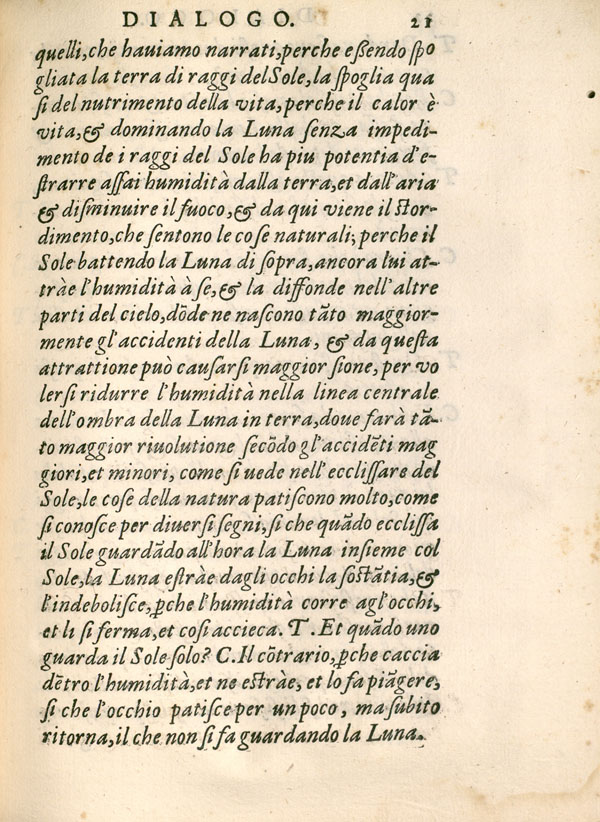 DIALOGO. 21
quelli, che haviamo narrati, perche eſſendo ſpo
gliata la terra di raggi del Sole, la ſpoglia qua
ſi del nutrimento della vita, perche il calor è
vita, & dominando la Luna ſenza impedi-
mento de i raggi del Sole ha piu potentia d'e-
ſtrarre aſſai humidità dalla terra, et dall'aria
& diſminuire il fuoco, & da qui viene il ſtor-
dimento, che ſentono le coſe naturali; perche il
Sole battendo la Luna di ſopra, ancora lui at-
tràe l'humidità à ſe, & la diffonde nell'altre
parti del cielo, dōde ne naſcono tāto maggior-
mente gl'accidenti della Luna, & da queſta
attrattione può cauſarſi maggior ſione, per vo
lerſi ridurre l'humidità nella linea centrale
dell'ombra della Luna in terra, doue farà tā-
to maggior riuolutione ſecōdo gl'accidēti mag
giori, et minori, come ſi uede nell'eccliſſare del
Sole, le coſe della natura patiſcono molto, come
ſi conoſce per diuerſi ſegni, ſi che quādo eccliſſa
il Sole guardādo all'hora la Luna inſieme col
Sole, la Luna eſtràe dagli occhi la ſoſtātia, &
l'indeboliſce, ꝑche l'humidità corre agl'occhi,
et li ſi ferma, et coſi accieca. T. Et quādo uno
guarda il Sole ſolo? C. Il cōtrario, ꝑche caccia
dētro l'humidità, et ne eſtràe, et lo fa piāgere,
ſi che l'occhio patiſce per un poco, ma ſubito
ritorna, il che non ſi fa guardando la Luna.